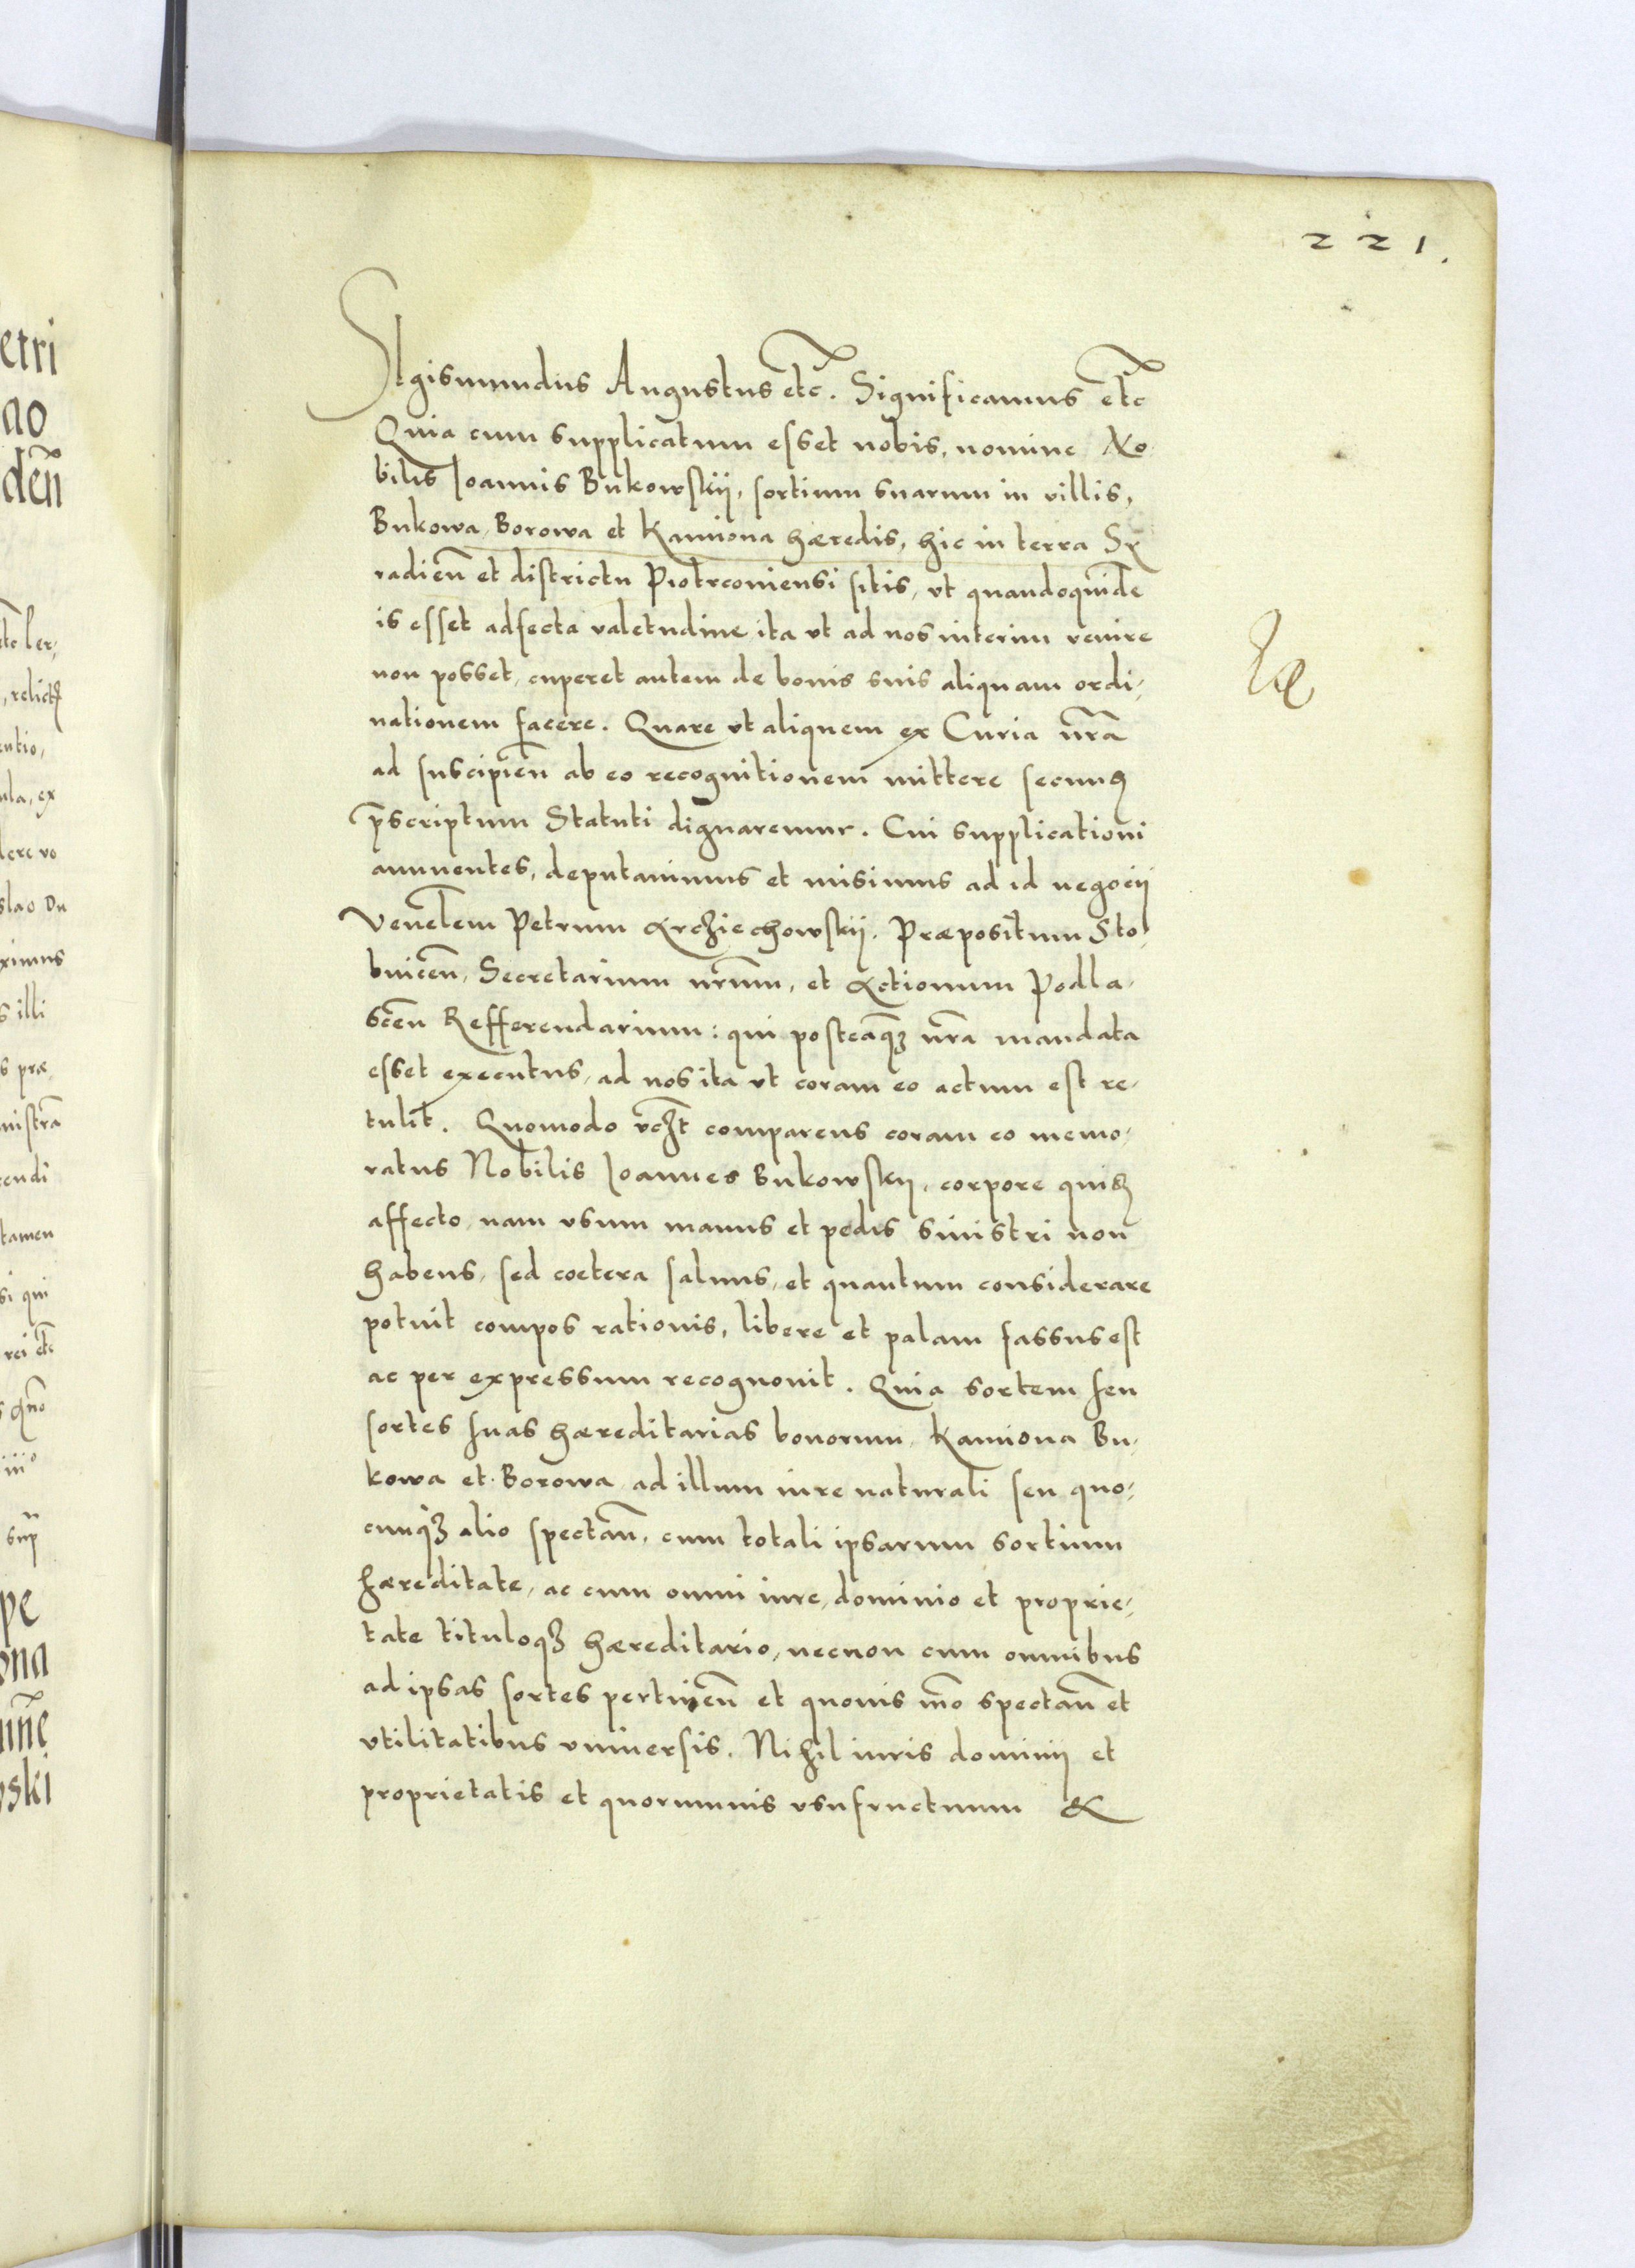 221.
Sigismundus Augustus etc̃. Significamus etc̃
Quia cum supplicatum esset nobis, nomine No
bilis Joannis Bukowskij, sortium suarum in villis,
Bukowa, Borowa et Kamiona hæredis, hic in terra Sy
radieñ et districtu Piotrconiensi sitis, vt quandoquidẽ
is esset adfecta valetudine ita vt ad nos interim venire
non posset, cuperet autem de bonis suis aliquam ordi-
nationem facere. Quare vt aliquem ex Curia nrã
ad suscipieñ ab eo recognitionem mittere secunđ
p̃scriptum Statuti dignaremur. Cui supplicationi
annuentes, deputauimus et misimus ad id negocij
Venełem Petrum Krzÿechowskij. Præpositum Sto-
bniceñ, Secretarium nrũm, et Actionum Podla-
sceñ Refferendarium: qui posteaq̃ꝫ nrã mandata
esset executus, ad nos ita vt coram eo actum est re-
tulit. Quomodo vcꝫt comparens coram eo memo-
ratus Nobilis Joannes Bukowskij, corpore quiđ
affecto, nam vsum manus et pedis sinistri non
habens, sed coetera saluus, et quantum considerare
potuit compos rationis, libere et palam fassus est
ac per expressum recognouit. Quia sortem seu
sortes suas hæreditarias bonorum, Kamiona Bu-
kowa et Borowa ad illum iure naturali seu quo-
cunqꝫ alio spectañ, cum totali ipsarum sortium
hæreditate, ac cum omni iure, dominio et proprie-
tate tituloqꝫ hæreditario, necnon cum omnibus
ad ipsas sortes pertineñ et quouis mõ spectañ et
vtilitatibus vniuersis. Nihil iuris dominij et
proprietatis et quorumuis vsufructuum &